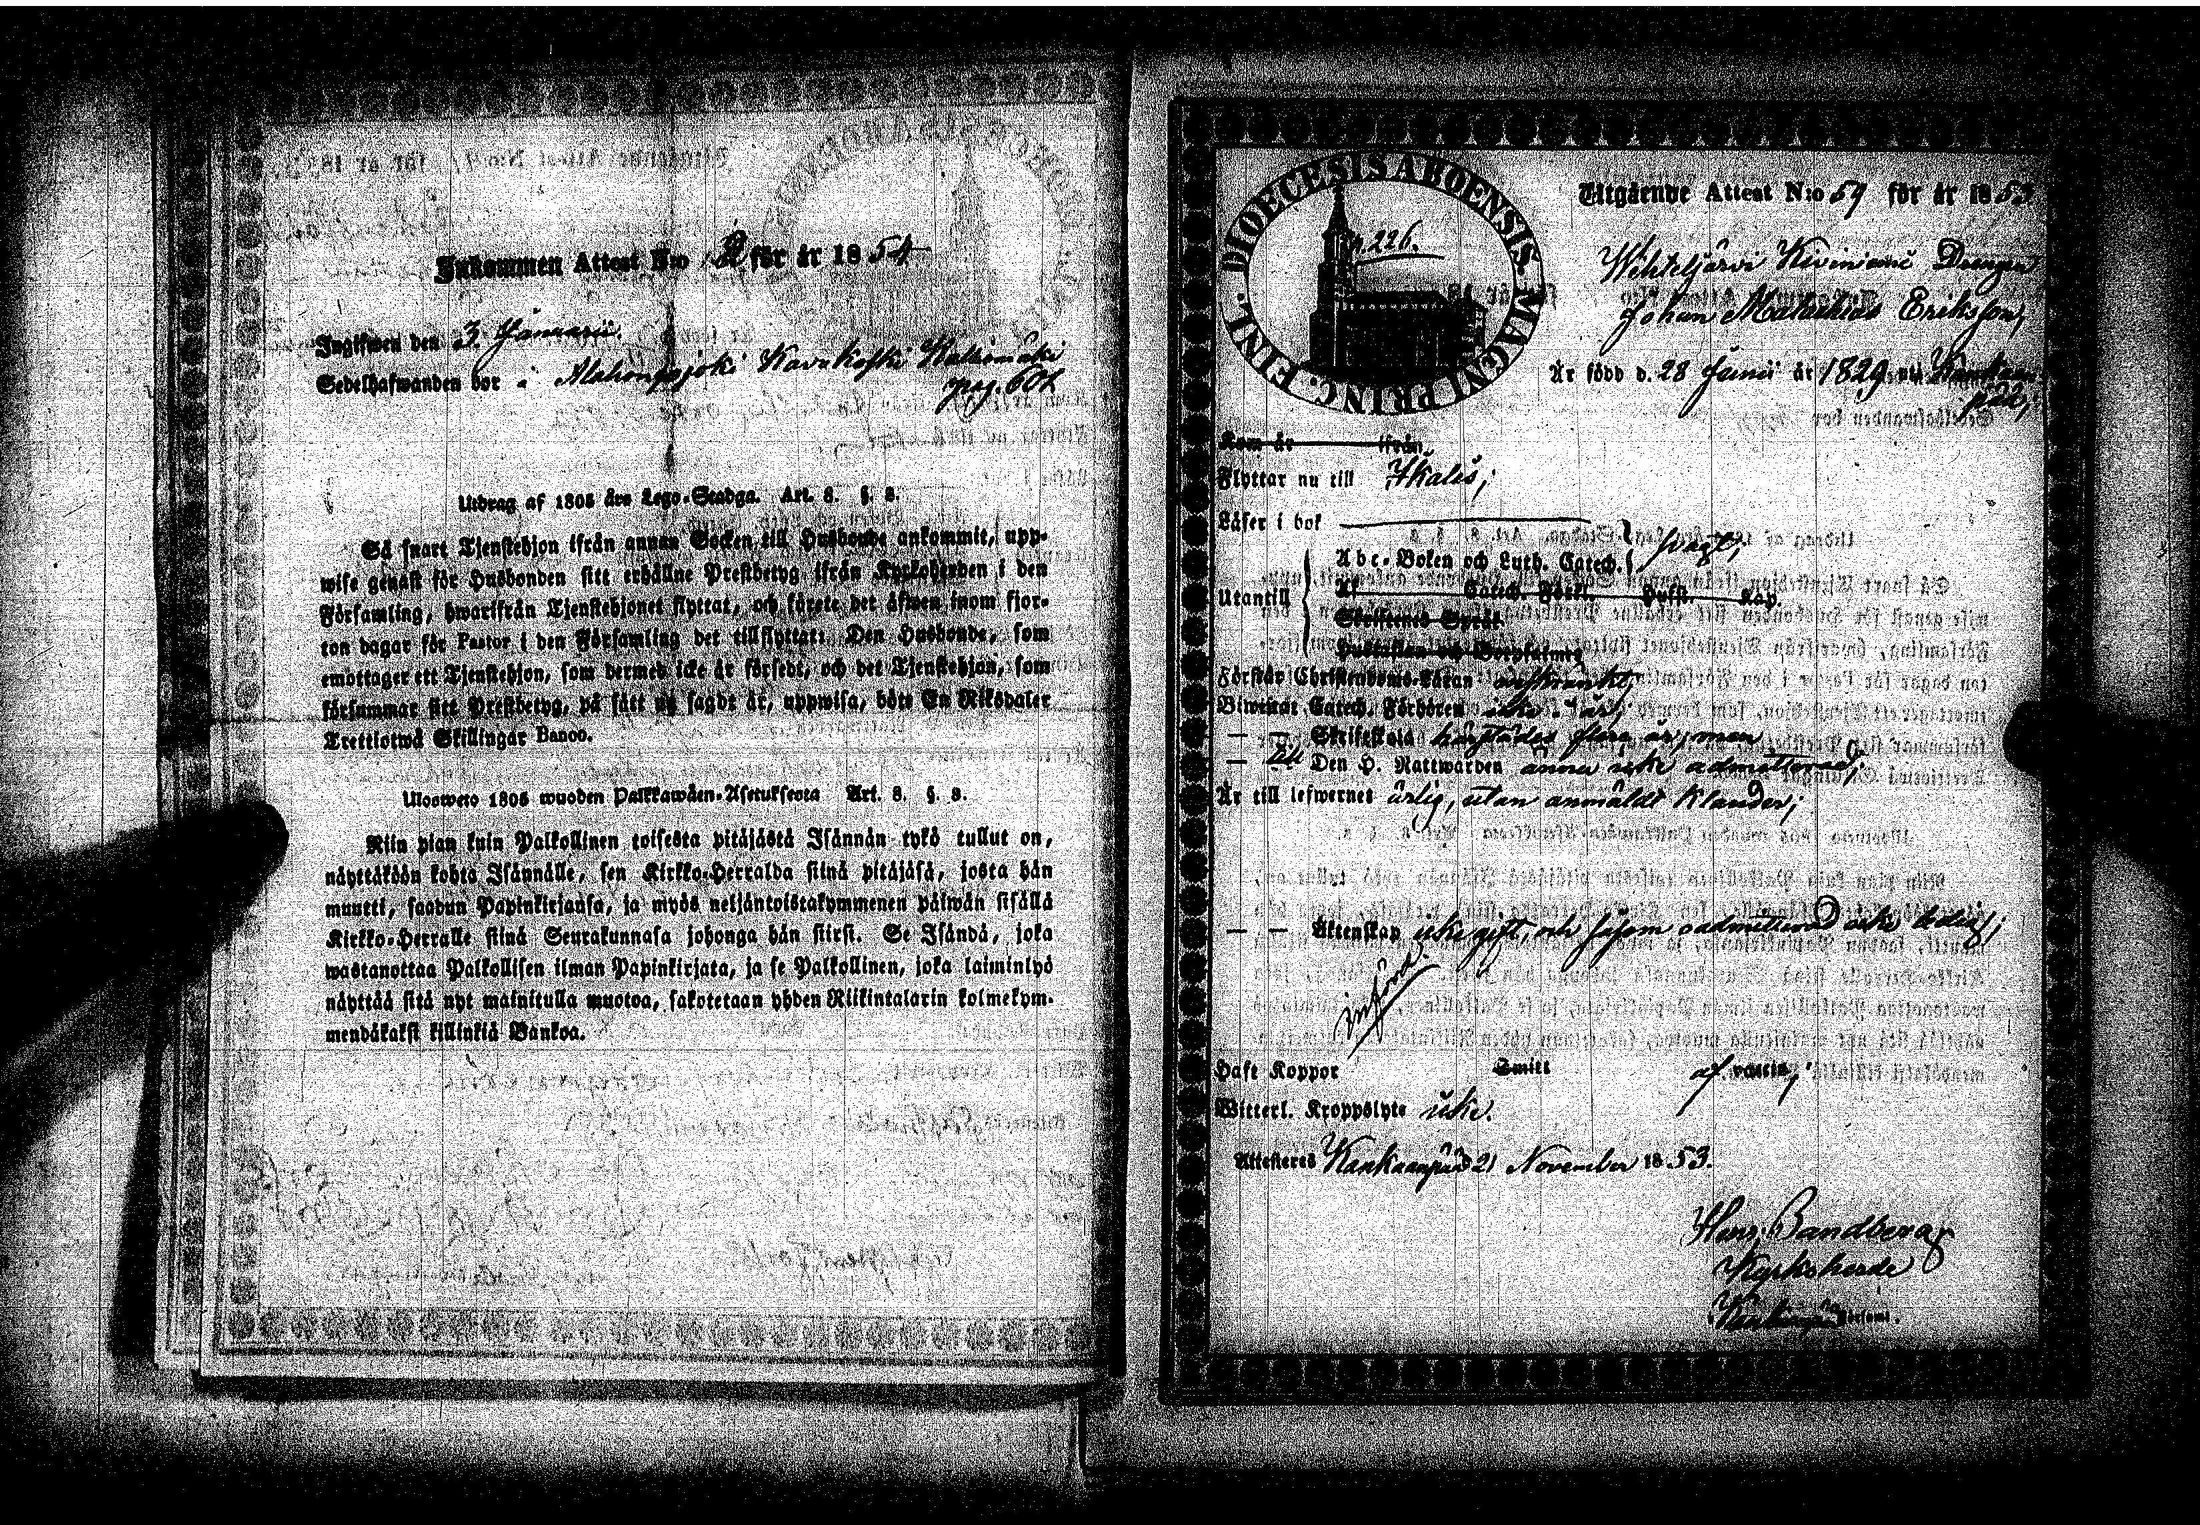 Inkommen Attest N:o 2 för år 1854
Ingifwen den 3 Januarii.
Sedelhafwanden bor i Alahongojoki Kavakoski
pag. 602
Utdrag af 1805 års Lego-Stadga. Art. 8. §. 8.
Så snart Tjenstehjon ifrån annan Socken till Husbonde ankommit, upp-
wise genast för Husbonden sitt erhållne Prestbetyg ifrån Kyrkoherden i den
Församling, hwarifrån Tjenstehjonet flyttat, och förete det äfwen inom fjor-
ton dagar för Pastor i den Församling det tillflyttat: Den Husbonde, som
emottager ett Tjenstehjon, som dermed icke är försedt, och det Tjenstehjon, som
försummar sitt Prestbetyg, på sätt nu sagdt är, uppwisa, böte En Riksdaler
Trettiotwå Skillingar Banco.
Ulosweto 1805 wuoden Palkkawäen-Asetuksesta Art. 8. §. 8.
Niin pian kuin Palkollinen toisesta pitäjästä Isännän tykö tullut on,
näyttäköön kohta Isännälle, sen Kirkko-Herralda siinä pitäjäsä, josta hän
muutti, saadun Papinkirjansa, ja myös neljäntoistakymmenen päiwän sisällä
Kirkko-Herralle siinä Seurakunnasa johonga hän siirsi. Se Isändä, joka
wastanottaa Palkollisen ilman Papinkirjata, ja se Palkollinen, joka laiminlyö
näyttää sitä nyt mainitulla muotoa, sakotetaan yhden Riikintalarin kolmekym-
mendäkaksi killinkiä Bankoa.
DIOECESIS ABOENSIS. MAGNI PRINC. FINL.
p. 226.
Utgående Attest N:o 59 för år 1853
Wihteljärvi Kiviniemi Drengen
Johan Mathias Eriksson,
Är född d. 28 Junii år 1829 uti Kankaan-
pää;
Kom år ifrån
Flyttar nu till Ikalis;
Läser i bok
Abc-Boken och Luth. Catech. svagt;
Utantill
Af Catech. Förkl. Hufst. Kap.
Skriftenes Språk
Hustaflan och Botpsalmer
Förstår Christendoms-Läran inskränkt;
Biwistat Catech. Förhören icke i år;
— — Skriftskola härstädes flera år, men
— Till Den H. Nattwarden ännu icke admitterad;
Är till lefwernet ärlig, utan anmäldt klander;
— — Äktenskap icke gift, och såsom oadmitterad icke ledig;
införd.
Haft Koppor Smitt af vaccin,
Witterl. Kroppslyte icke.
Attesteras Kankaanpää d. 21 November 1853.
Hens. Bandberg
Kyrkoherde
i Kankaanpää Församl.